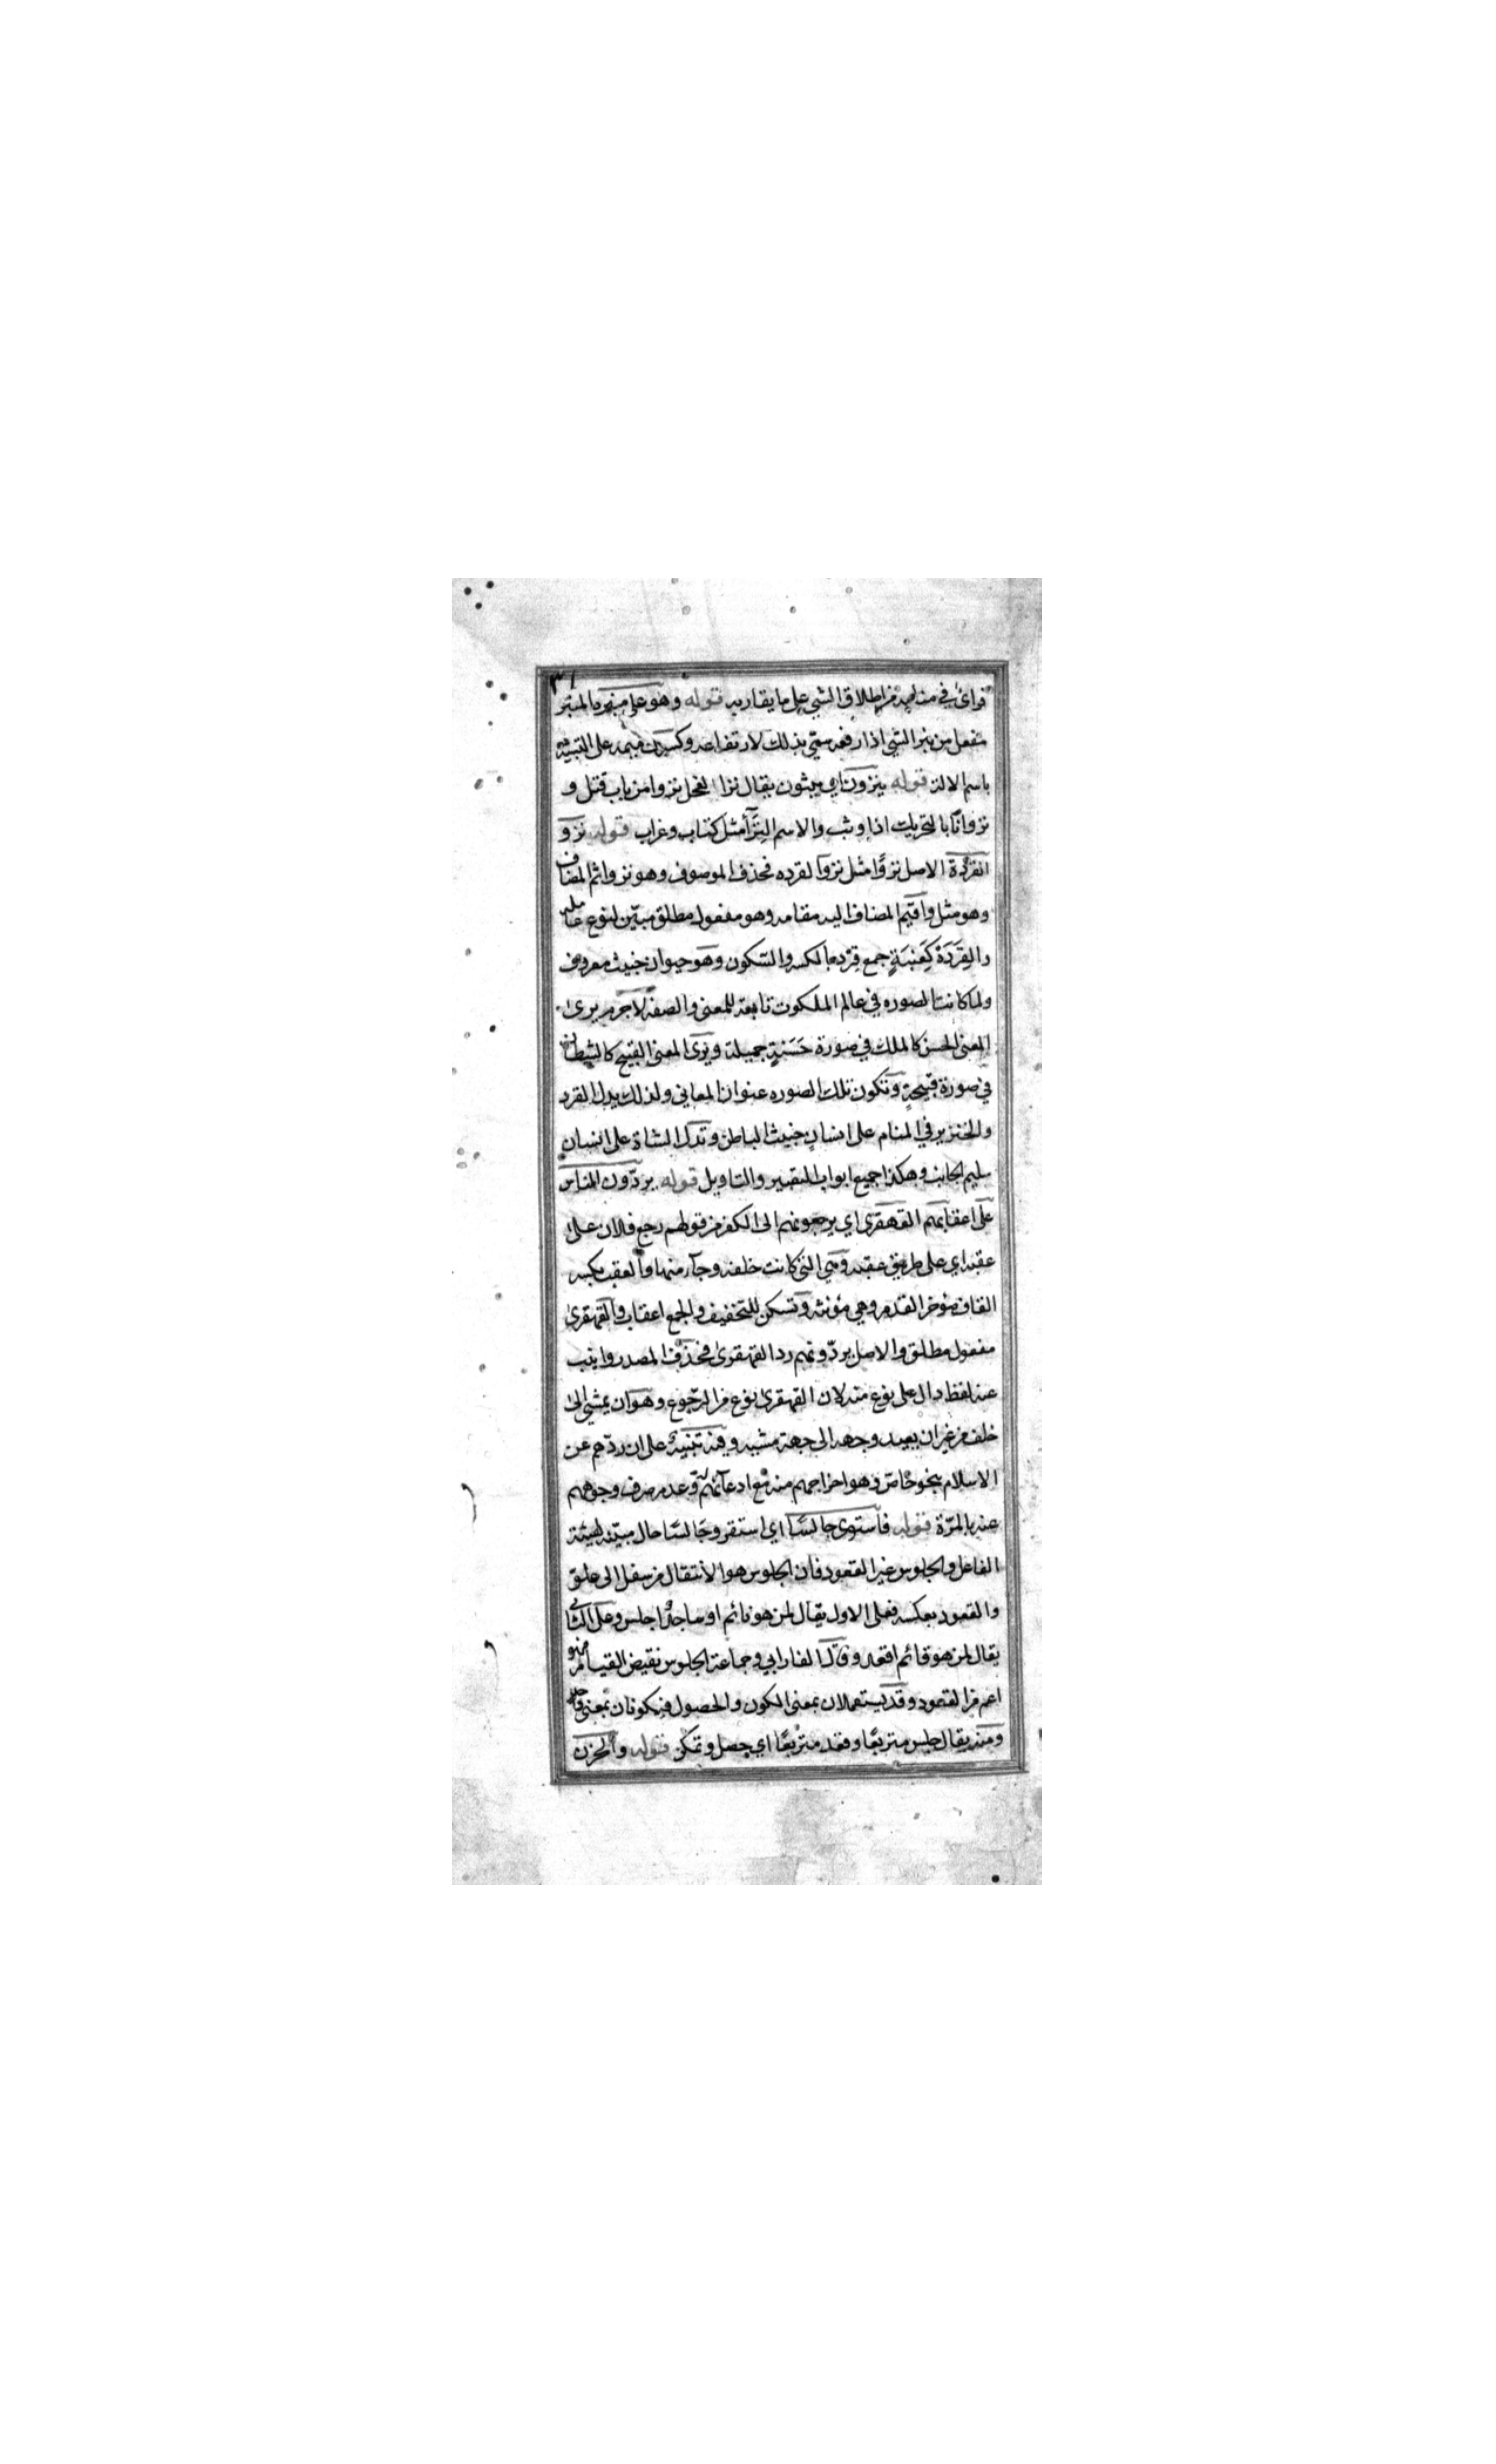 ٣١
فرائ في منامه من اطلاق الشي على ما يقاربه قوله وهو على منبره المنبر
مفعل من نبر الشي اذا رفعه سمّي بذلك لارتفاعه وكسرت ميمه على التشبيه
باسم الالة قوله ينزون اي يبثون يقال نزا الفحل نزوا من باب قتل و
نزوانًا بالتحريك اذا وثب والاسم النزآء مثل كتاب وغراب قوله نزو
القردة الاصل نزوًا مثل نزو القرده فحذف الموصوف وهو نزوا ثم المضاف
وهو مثل واقيم المضاف اليه مقامه وهو مفعول مطلق مبيّن لنوع عامله
والقِرَدَة كَعِنَبَةٍ جمع قِرْد بالكسر والسّكون وهو حيوان خبيث معروف
ولما كانت الصوره في عالم الملكوت تابعة للمعنى والصفة لا جرم يرى
المعنى الحسن كالملك في صورة حَسَنةٍ جميلة ويرى المعنى القبيح كالشيطان
في صورة قبيحةٍ وتكون تلك الصوره عنوان المعاني ولذلك يدل القرد
والخنزير في المنام على انسانٍ خبيث الباطن وتدل الشاة على انسانٍ
سليم الجانب وهكذا جميع ابواب التعبير والتاويل قوله يردّون الناس
على اعقابهم القهقرى اي يرجعونهم الى الكفر من قولهم رجع فلان على
عقبه اي على طريق عقبه وهي التي كانت خلفه وجآء منها والعقب بكسر
القاف مؤخر القدم وهي مؤنثه وتسكن للتخفيف والجمع اعقاب والقهقرى
مفعول مطلق والاصل يردّونهم رد القهقرى فحذف المصدر وانيب
عنه لفظ دال على نوع منه لان القهقرى نوع من الرجوع وهو ان يمشي الى
خلف من غير ان يعيد وجهه الى جهة مشيه وفيه تنبيهٌ على ان ردّهم عن
الاسلام بنحو خاصّ وهو اخراجهم منه مع ادعآئهم له وعدم صرف وجوههم
عنه بالمرّة قوله فاستوى جالسًا اي استقر وجالسًا حال مبيّنه لهيئة
الفاعل والجلوس غير القعود فان الجلوس هو الانتقال من سفل الى علو
والقعود بعكسه فعلى الاول يقال لمن هو نائم او ساجدٌ اجلس وعلى الثاني
يقال لمن هو قائم اقعد وقال الفارابي وجماعة الجلوس نقيض القيام فهو
اعم من القعود وقد يستعملان بمعنى الكون والحصول فيكونان بمعنى واحد
ومنه يقال جلس متربعًا وقعد متربعًا اي حصل وتمكن قوله والحزن